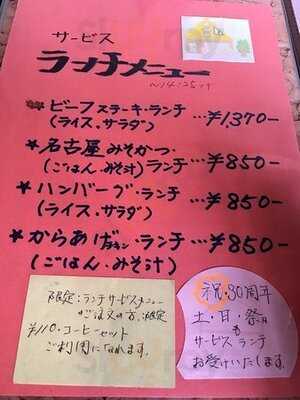 サービス
ランチメニュー
～14:25まで
ビーフステーキ・ランチ …¥1,370-
(ライス、サラダ)
★名古屋みそかつ・
(ごはん、みそ汁)ランチ …¥850-
★ハンバーグ・ランチ …¥850-
(ライス、サラダ)
★からあげ・ランチ …¥850-
(ごはん、みそ汁)
限定:ランチサービスメニュー
がご注文の方、限定
¥110・コーヒーセット
ご利用になれます。
祝・30周年
土・日・祭日
も
サービスランチ
お受けいたします。